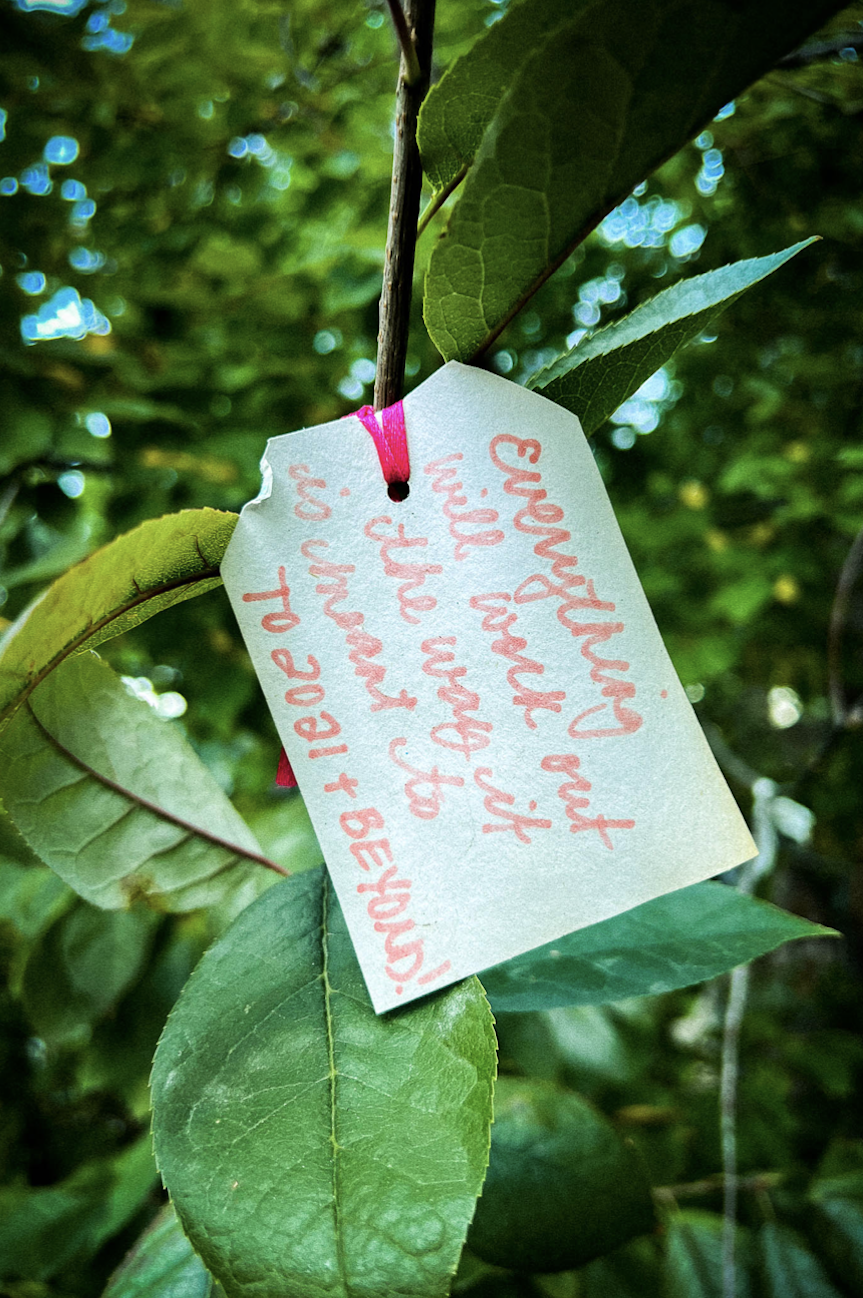 Everything
will work out
the way it
is meant to
TO 2021 + BEYOND!